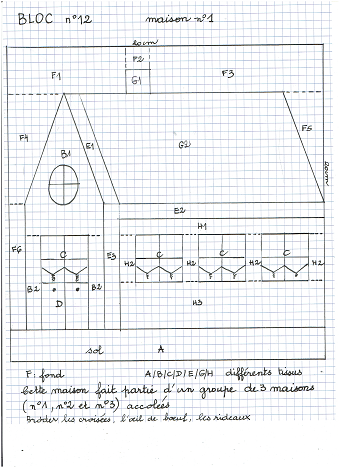 BLOC n°12 maison n°1
20cm
F2
F1 G1 F3
F4 E1 F5
B1 G2
20cm
E2
H1
F6 E3
C H2 C H2 C H2 C H2
B2 B2
D H3
sol A
F: fond A/B/C/D/E/G/H différents tissus
Cette maison fait partie d'un groupe de 3 maisons
(n°1, n°2 et n°3) accolées
Broder les croisées, l'œil de bœuf, les rideaux